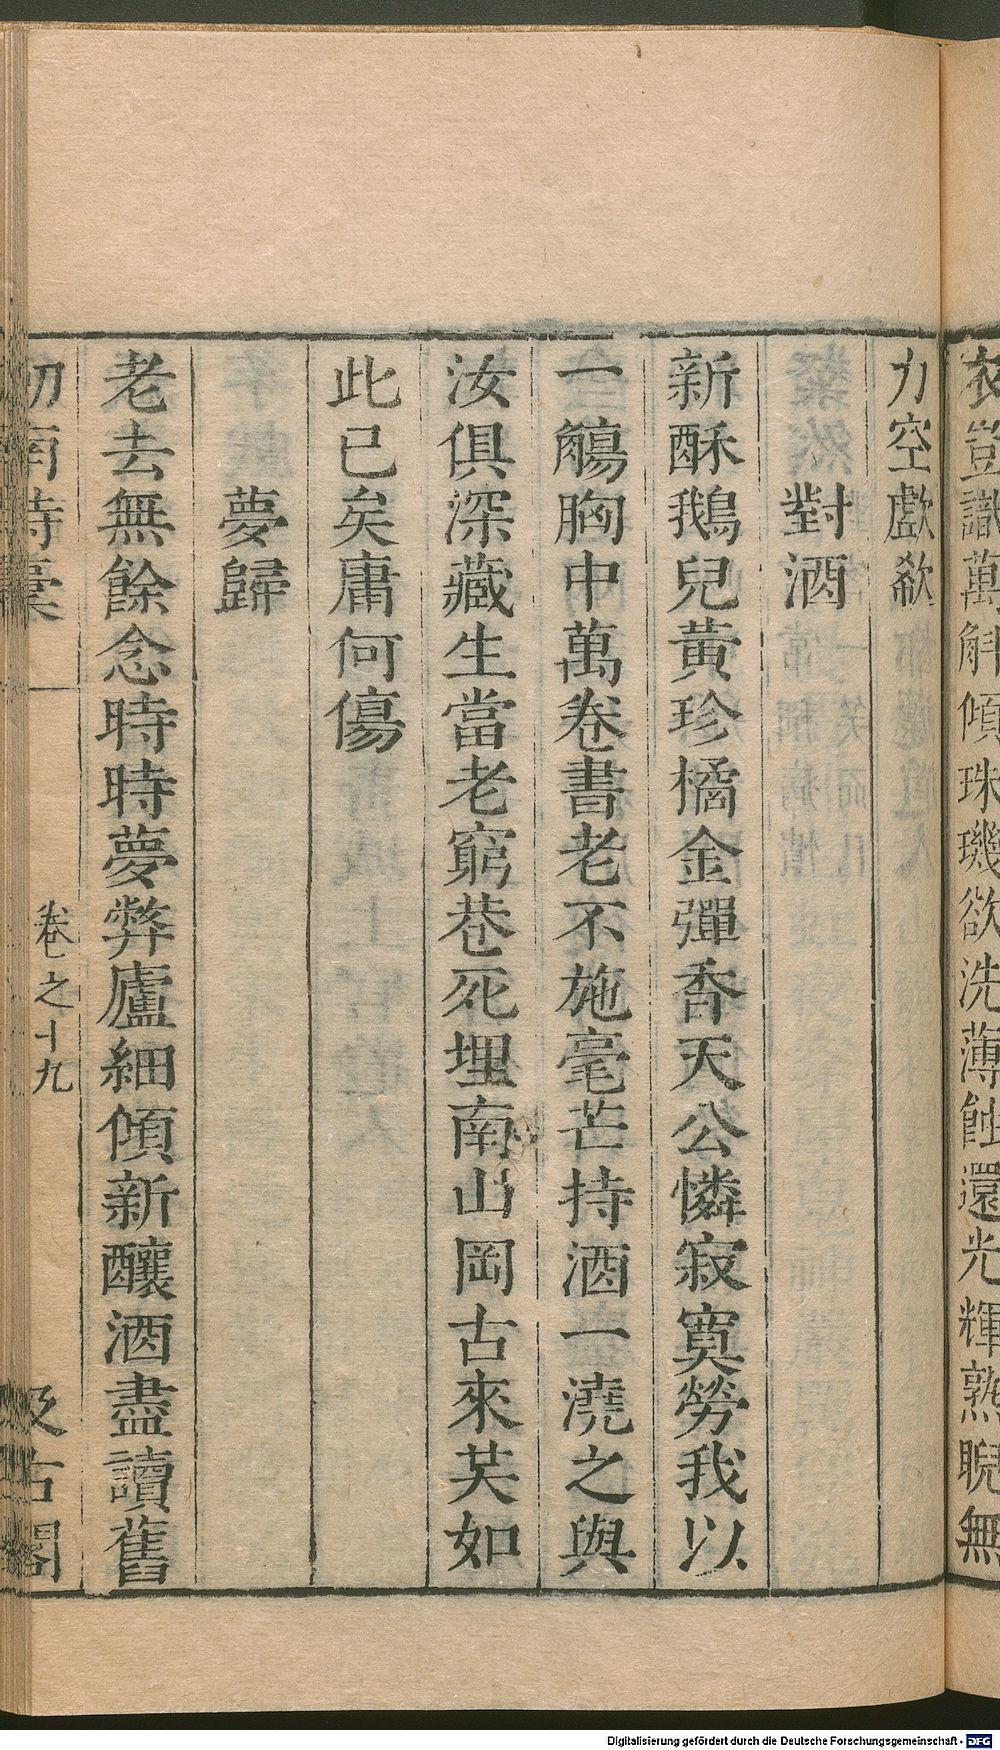 衣豈識萬斛傾珠璣欲洗薄蝕還光輝熟睨無
力空歔欷
對酒
新酥鵝兒黃珍橘金彈香天公憐寂寞勞我以
一觴胸中萬卷書老不施毫芒持酒一澆之與
汝俱深藏生當老窮巷死埋南山岡古來芺如
此已矣庸何傷
夢歸
老去無餘念時時夢弊廬細傾新釀酒盡讀舊
劍南詩稾
卷之十九
汲古閣
Digitalisierung gefördert durch die Deutsche Forschungsgemeinschaft - DFG